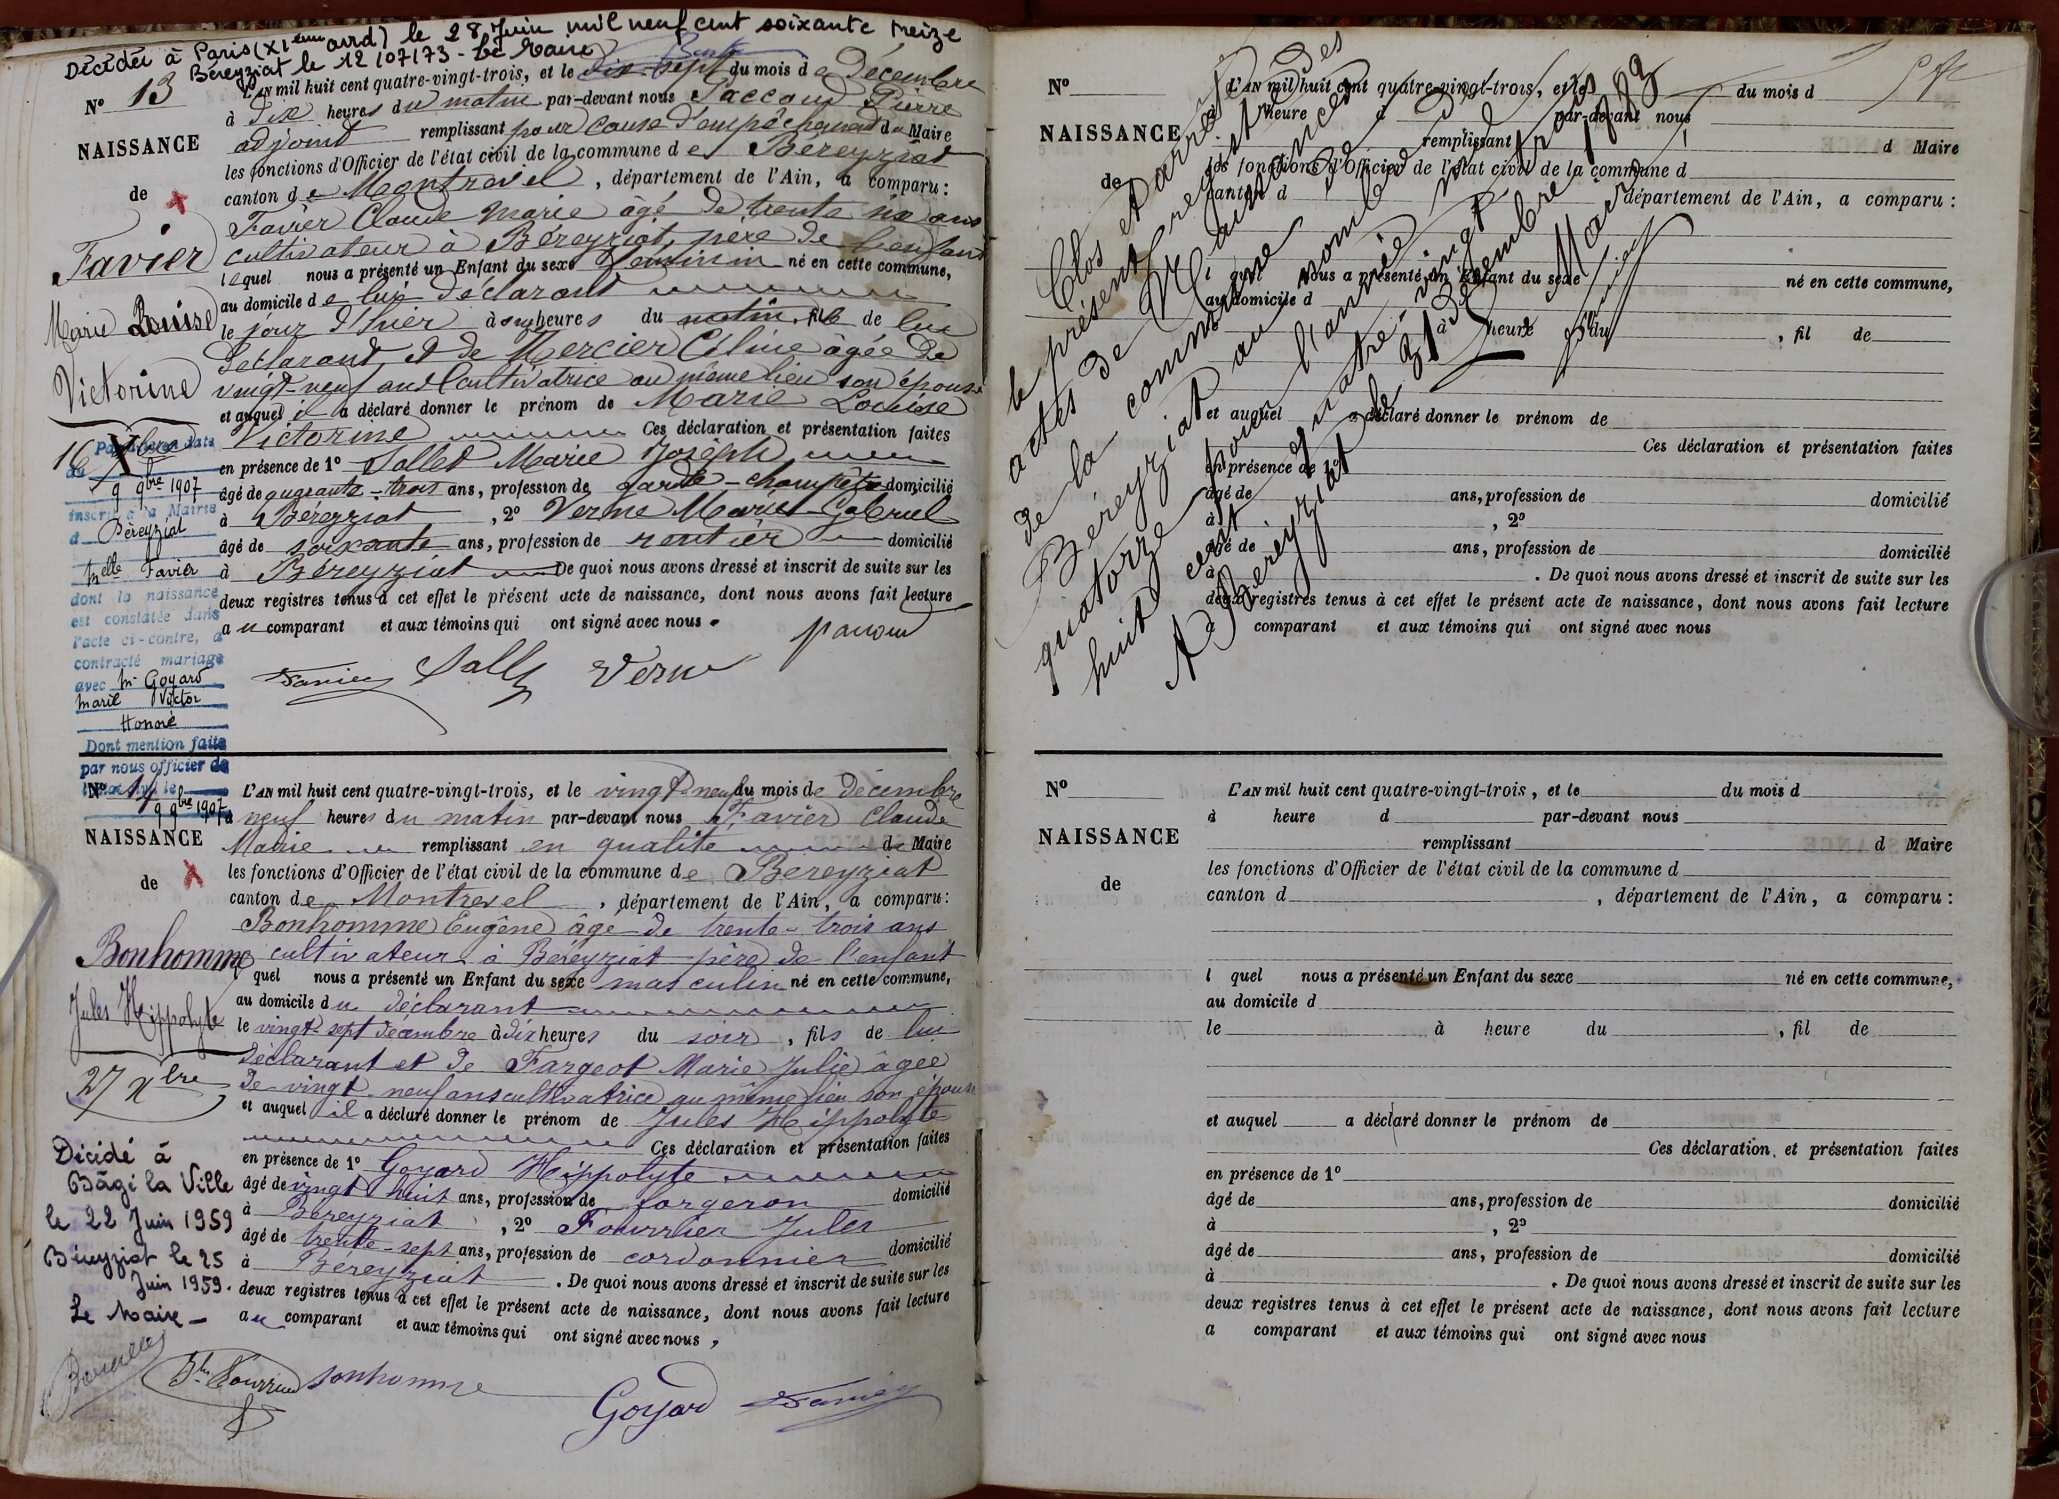 Décédée à Paris (XI ème arrd) le 28 Juin mil neuf cent soixante treize
Béreyziat le 12/07/73 - Le Maire
N° 13
NAISSANCE
de
Favier
Marie Louise
Victorine
16 Xbre
L'AN mil huit cent quatre-vingt-trois, et le dix-sept du mois de Décembre
à dix heures du matin par-devant nous Paccoud Pierre
adjoint remplissant pour cause d'empêchement du Maire
les fonctions d'Officier de l'état civil de la commune de Béreyziat
canton de Montrevel, département de l'Ain, a comparu:
Favier Claude Marie âgé de trente six ans
cultivateur à Béreyziat, père de l'enfant
lequel nous a présenté un Enfant du sexe féminin né en cette commune,
au domicile de lui déclarant
le jour d'hier à onze heures du matin, fille de lui
déclarant et de Mercier Céline âgée de
vingt-neuf ans Cultivatrice au même lieu son épouse
et auquel il a déclaré donner le prénom de Marie Louise
Victorine Ces déclaration et présentation faites
en présence de 1° Sallet Marie Joseph
âgé de quarante-trois ans, profession de garde-champêtre domicilié
à Béreyziat, 2° Verne Marie Gabriel
âgé de soixante ans, profession de rentier domicilié
à Béreyziat De quoi nous avons dressé et inscrit de suite sur les
deux registres tenus à cet effet le présent acte de naissance, dont nous avons fait lecture
au comparant et aux témoins qui ont signé avec nous.
Favier Sallet Verne Paccoud
Par acte en date
du
9 9bre 1907
inscrit à la Mairie
d Béreyziat
Melle Favier
dont la naissance
est constatée dans
l'acte ci-contre, a
contracté mariage
avec Mr Goyard
Marie Victor
Honoré
Dont mention faite
par nous officier de
l'état civil le
9 9bre 1907
N° 14
NAISSANCE
de
Bonhomme
Jules Hippolyte
27 Xbre
L'AN mil huit cent quatre-vingt-trois, et le vingt-neuf du mois de décembre
à neuf heures du matin par-devant nous Favier Claude
Marie remplissant en qualité de Maire
les fonctions d'Officier de l'état civil de la commune de Béreyziat
canton de Montrevel, département de l'Ain, a comparu:
Bonhomme Eugène âgé de trente-trois ans
cultivateur à Béreyziat père de l'enfant
quel nous a présenté un Enfant du sexe masculin né en cette commune,
au domicile du déclarant
le vingt-sept décembre à dix heures du soir, fils de lui
déclarant et de Fargeot Marie Julie âgée
de vingt-neuf ans cultivatrice au même lieu son épouse
et auquel il a déclaré donner le prénom de Jules Hippolyte
Ces déclaration et présentation faites
en présence de 1° Goyard Hippolyte
âgé de vingt-huit ans, profession de forgeron domicilié
à Béreyziat, 2° Fourrier Jules
âgé de trente-sept ans, profession de cordonnier domicilié
à Béreyziat. De quoi nous avons dressé et inscrit de suite sur les
deux registres tenus à cet effet le présent acte de naissance, dont nous avons fait lecture
au comparant et aux témoins qui ont signé avec nous,
Fourrier Bonhomme Goyard Favier
Décédé à
Bâgé la Ville
le 22 Juin 1959
Béreyziat le 25
Juin 1959.
Le Maire
N°
NAISSANCE
de
L'AN mil huit cent quatre-vingt-trois, et le du mois d
à heure d par-devant nous
remplissant d Maire
les fonctions d'Officier de l'état civil de la commune d
canton d département de l'Ain, a comparu:
l quel nous a présenté un Enfant du sexe né en cette commune,
au domicile d
à heure du, fil de
et auquel a déclaré donner le prénom de
Ces déclaration et présentation faites
en présence de 1°
âgé de ans, profession de domicilié
à, 2°
âgé de ans, profession de domicilié
à. De quoi nous avons dressé et inscrit de suite sur les
deux registres tenus à cet effet le présent acte de naissance, dont nous avons fait lecture
a comparant et aux témoins qui ont signé avec nous
Clos et arrêté
le présent registre des
actes de Naissances
de la commune de
Béreyziat au nombre de
quatorze pour l'année mil
huit cent quatre-vingt trois
A Béreyziat le 31 décembre 1883
Le Maire
Favier
N°
NAISSANCE
de
L'AN mil huit cent quatre-vingt-trois, et le du mois d
à heure d par-devant nous
remplissant d Maire
les fonctions d'Officier de l'état civil de la commune d
canton d, département de l'Ain, a comparu:
l quel nous a présenté un Enfant du sexe né en cette commune,
au domicile d
le à heure du, fil de
et auquel a déclaré donner le prénom de
Ces déclaration et présentation faites
en présence de 1°
âgé de ans, profession de domicilié
à, 2°
âgé de ans, profession de domicilié
à. De quoi nous avons dressé et inscrit de suite sur les
deux registres tenus à cet effet le présent acte de naissance, dont nous avons fait lecture
a comparant et aux témoins qui ont signé avec nous